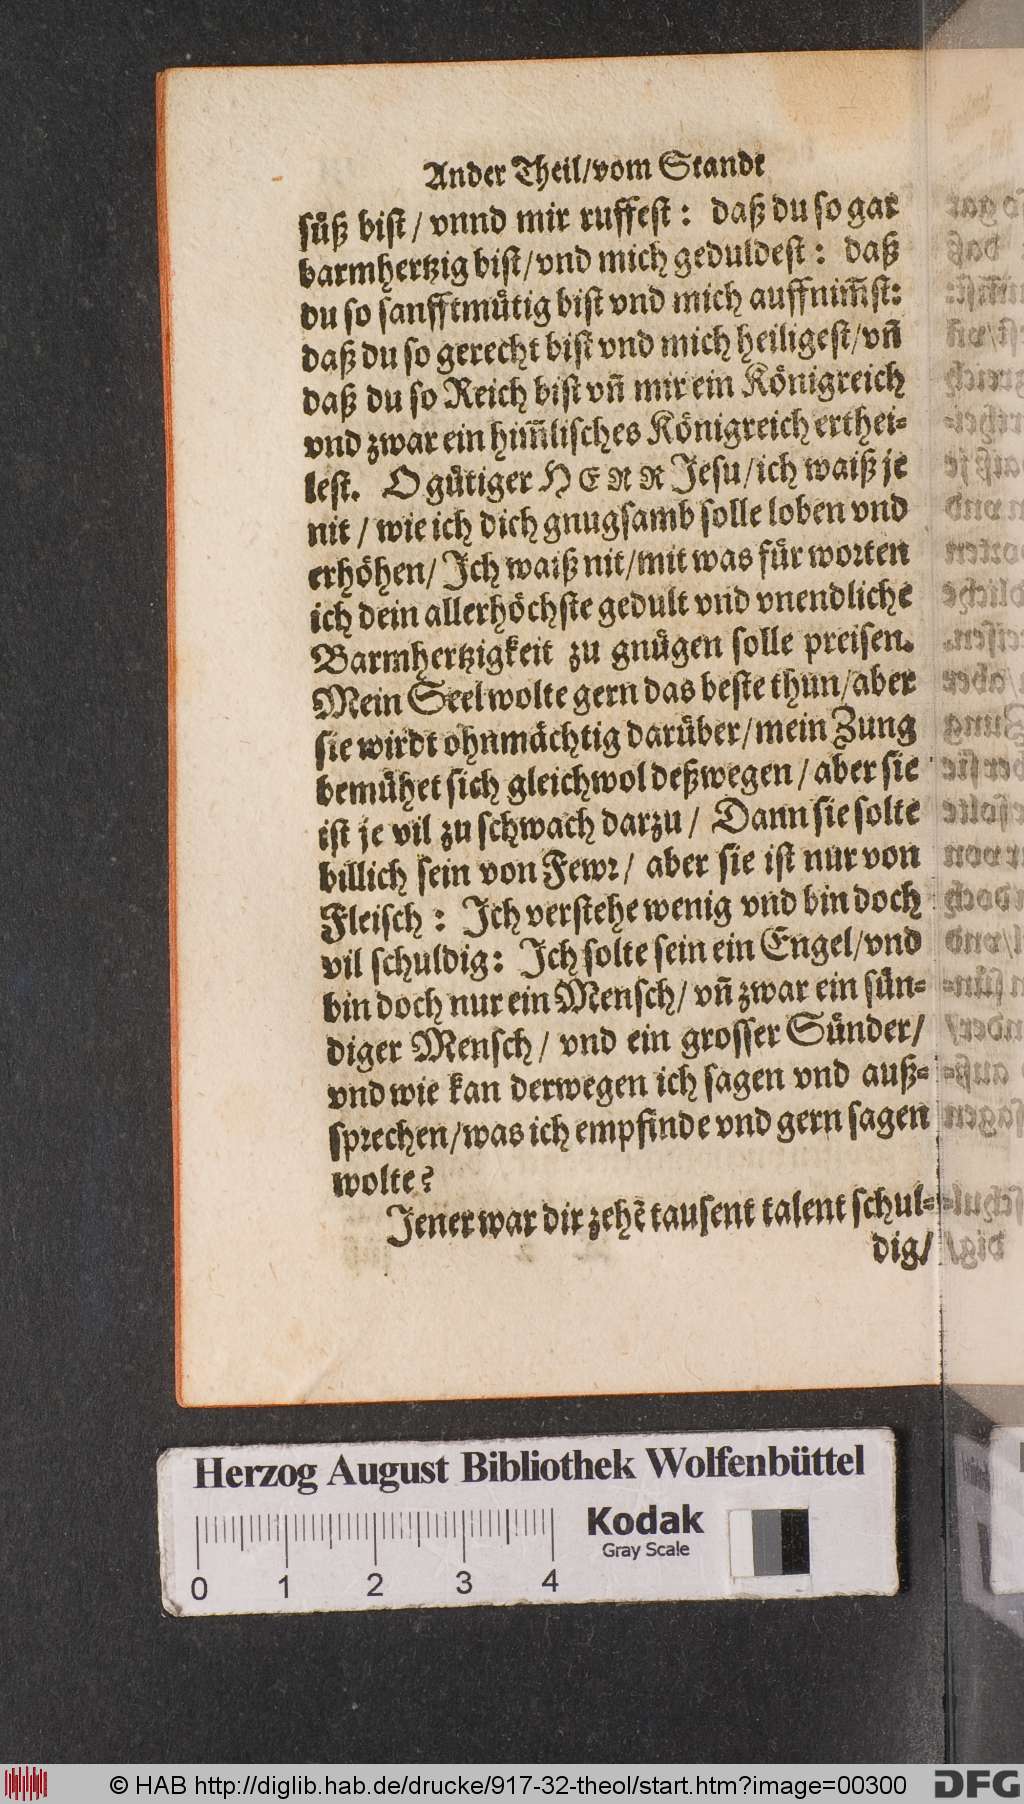 Ander Theil/vom Stande
süß bist/ vnnd mir ruffest: daß du so gar
barmhertzig bist/vnd mich geduldest: daß
du so sanfftmütig bist vnd mich auffnim̃st:
daß du so gerecht bist vnd mich heiligest/vñ
daß du so Reich bist vñ mir ein Königreich
vnd zwar ein him̃lisches Königreich erthei-
lest. O gütiger HERR Jesu/ich waiß je
nit/ wie ich dich gnugsamb solle loben vnd
erhöhen/ Ich waiß nit/mit was für worten
ich dein allerhöchste gedult vnd vnendliche
Barmhertzigkeit zu gnügen solle preisen.
Mein Seel wolte gern das beste thun/aber
sie wirdt ohnmächtig darüber/mein Zung
bemühet sich gleichwol deßwegen/ aber sie
ist je vil zu schwach darzu/ Dann sie solte
billich sein von Fewr/ aber sie ist nur von
Fleisch: Ich verstehe wenig vnd bin doch
vil schuldig: Ich solte sein ein Engel/vnd
bin doch nur ein Mensch/ vñ zwar ein sün-
diger Mensch/ vnd ein grosser Sünder/
vnd wie kan derwegen ich sagen vnd auß-
sprechen/was ich empfinde vnd gern sagen
wolte?
Jener war dir zehẽ tausent talent schul-
dig/
Herzog August Bibliothek Wolfenbüttel
Kodak
Gray Scale
0 1 2 3 4
© HAB http://diglib.hab.de/drucke/917-32-theol/start.htm?image=00300
DFG